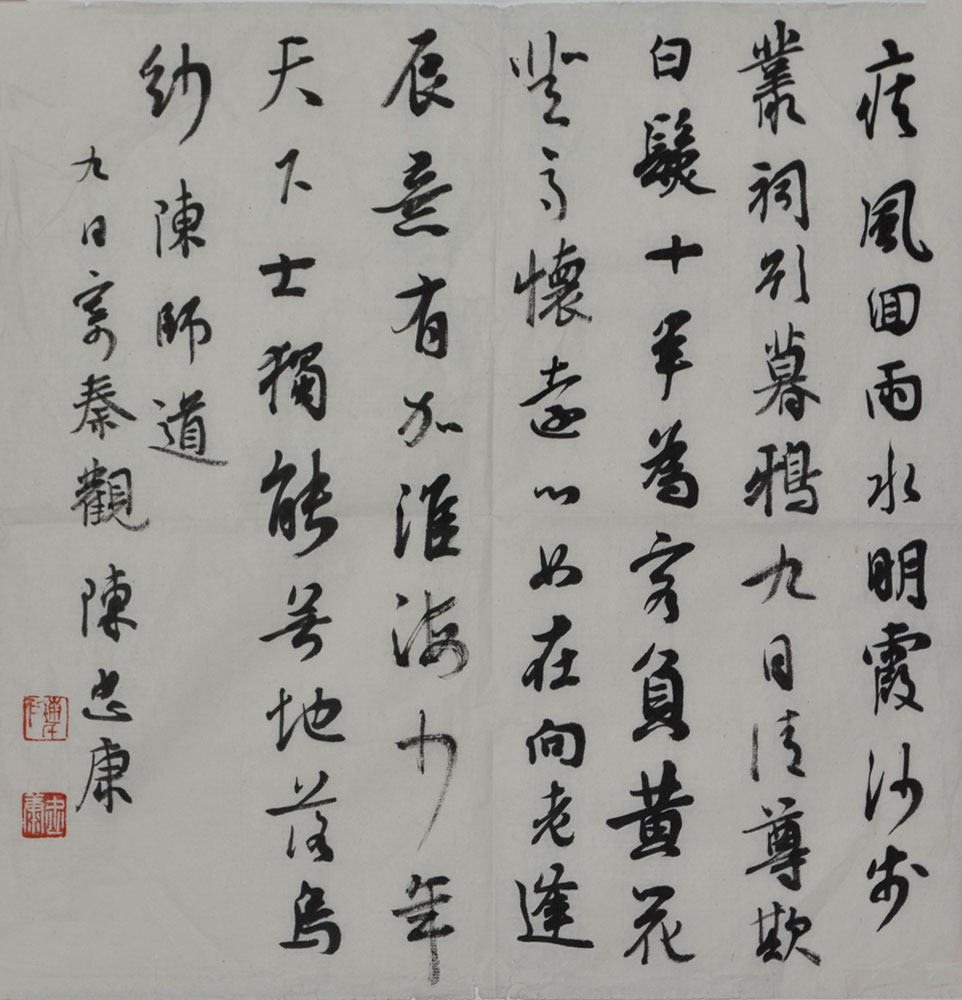 疾風囬雨水明霞沙步
叢祠引暮鴉九日清尊欺
白髮十年為客負黃花
登高懷遠心如在向老逢
辰意有加淮海少年
天下士獨能無地落烏
紗 陳師道
九日寄秦觀 陳忠康
忠康